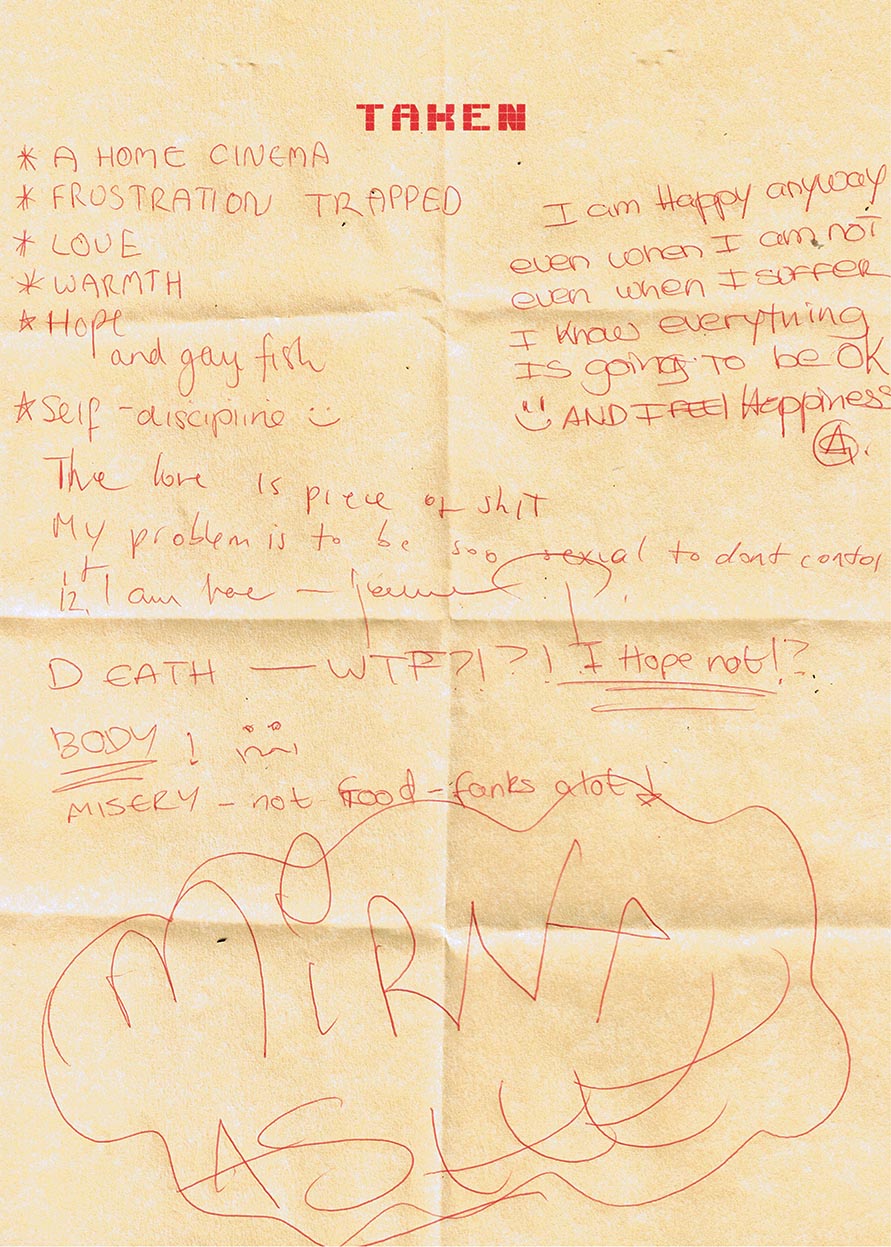 TAKEN
* A HOME CINEMA
* FRUSTRATION TRAPPED
* LOVE
* WARMTH
* Hope
and gay fish
* Self-discipline
I am Happy anyway
even when I am not
even when I SUFFER
I know everything
IS going TO be OK
AND I FEEL Happiness
A.
The love is piece of shIT
My problem is to be soo sexual to dont contol
it. I am
DEATH — WTF?!?! I Hope not!?
BODY !
MISERY - not Good - fanks a lot!
MIRNA